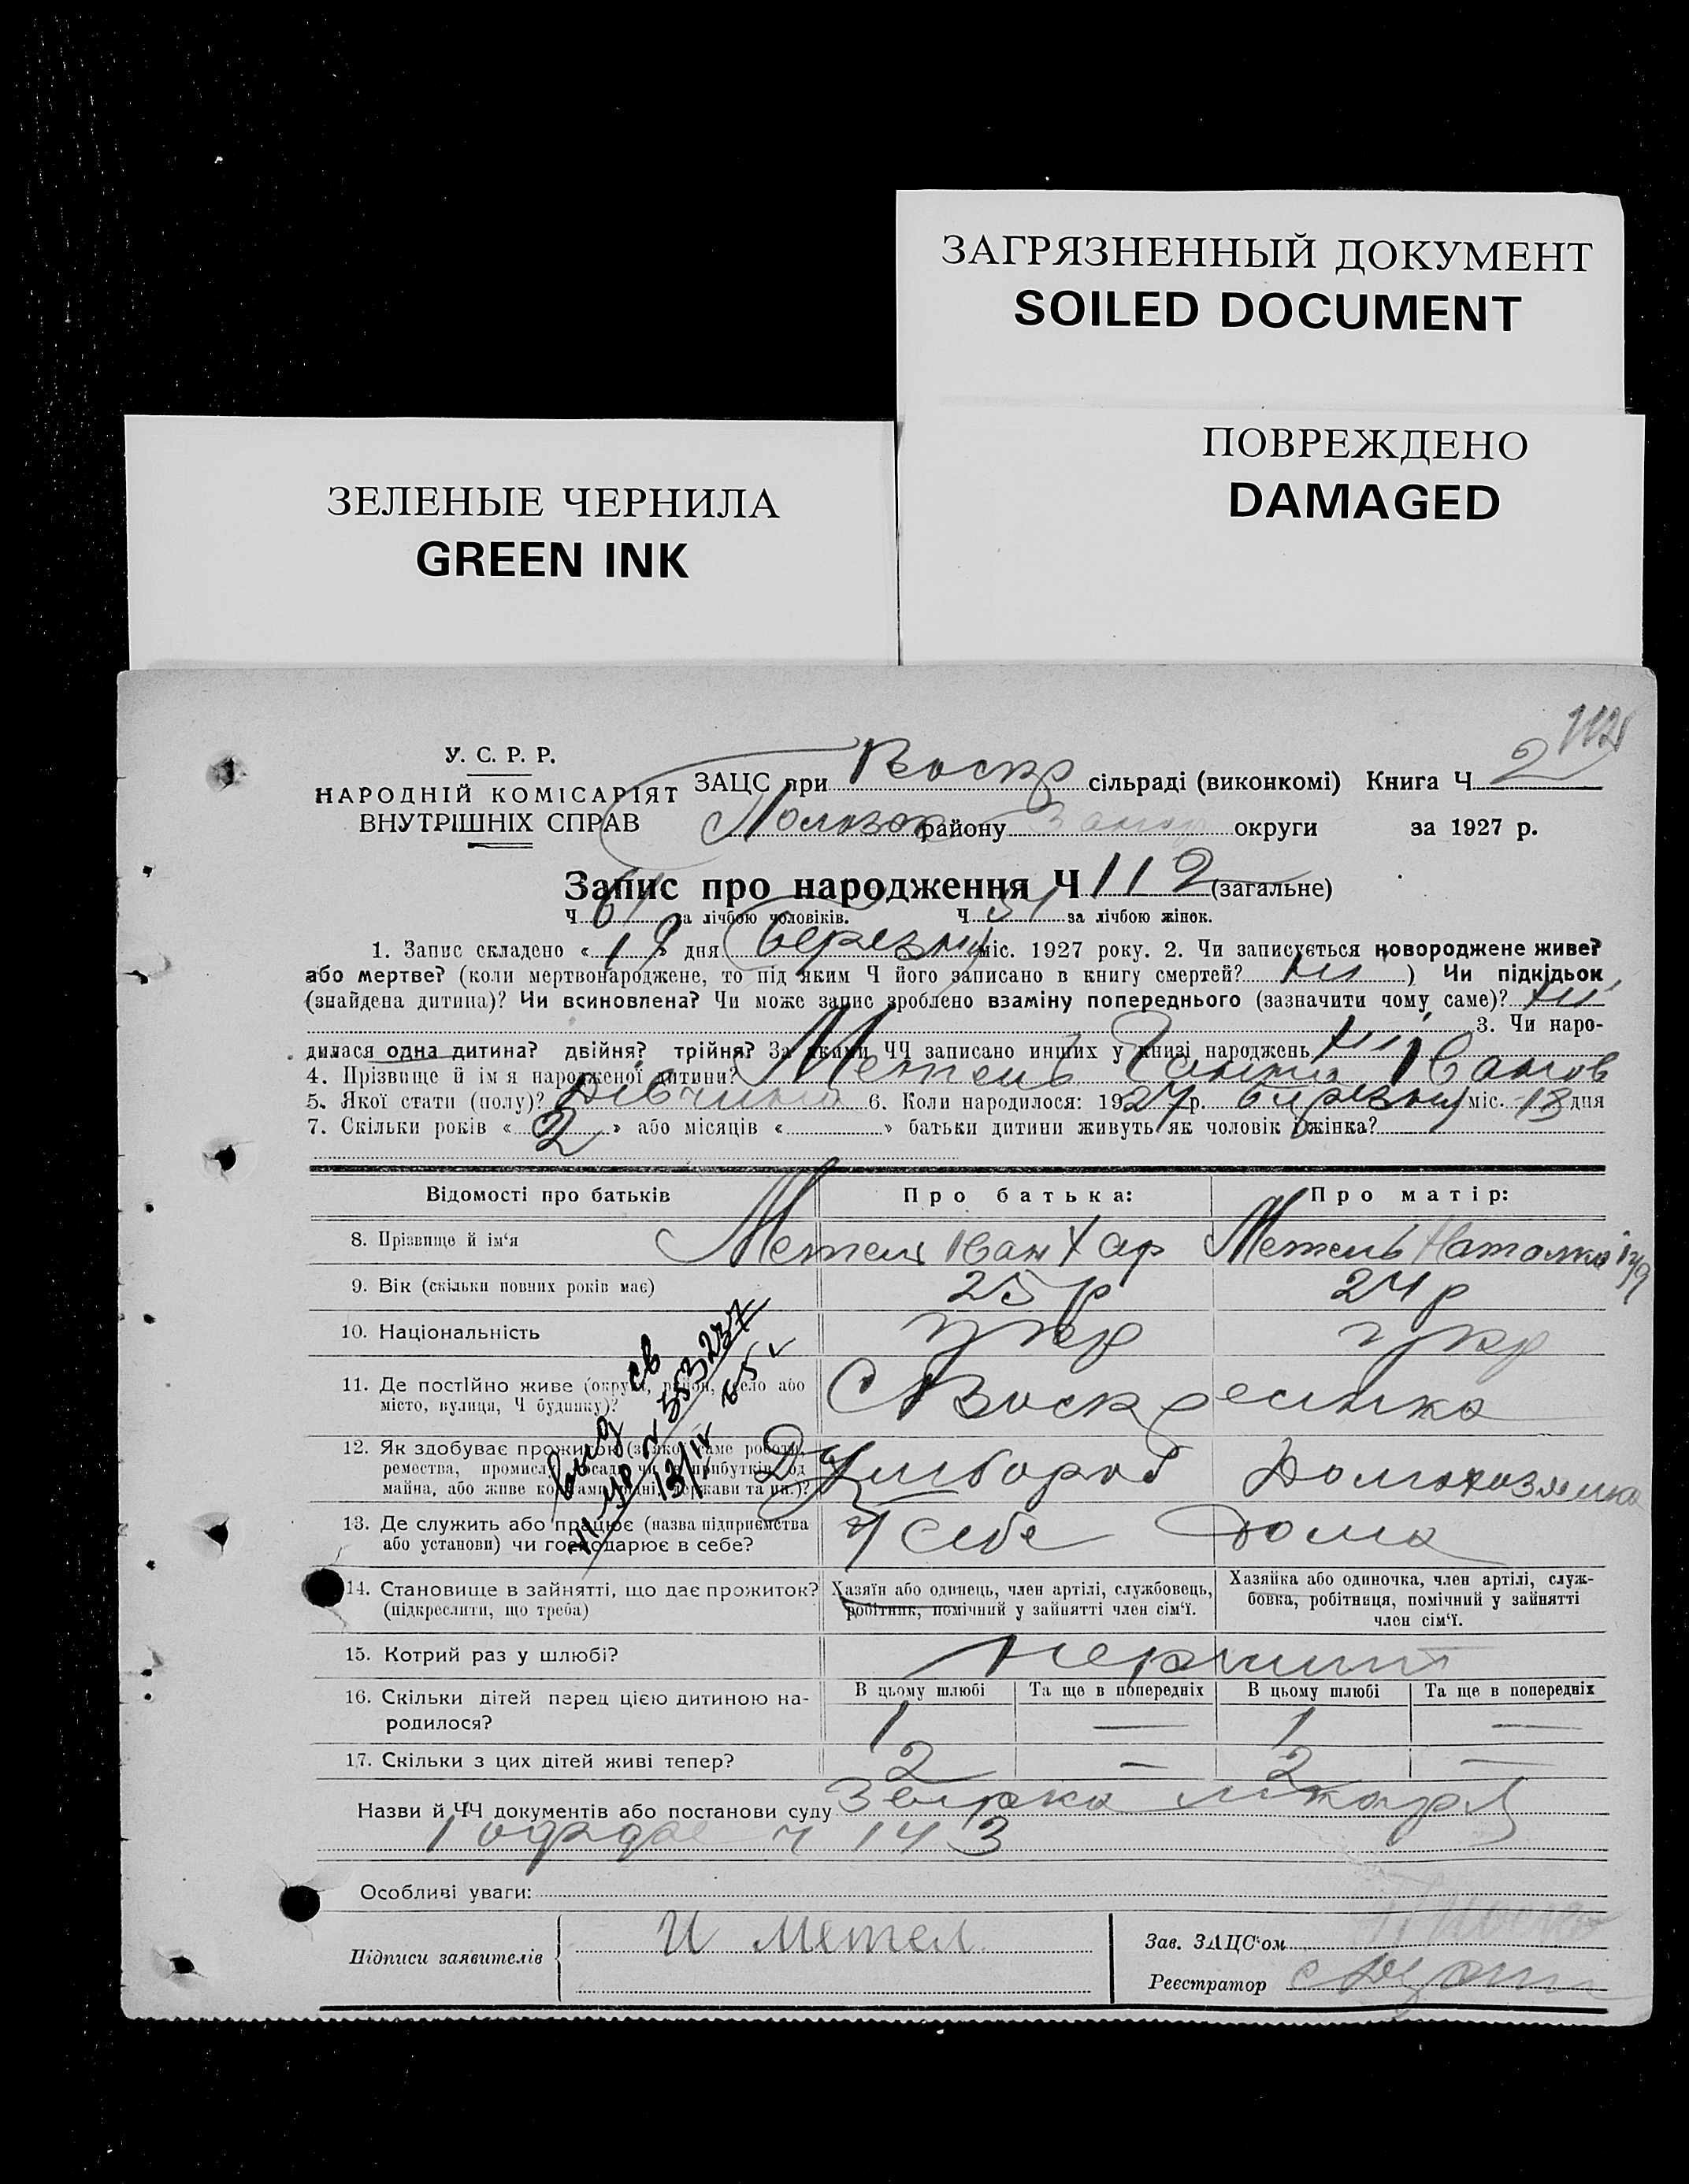 ЗАГРЯЗНЕННЫЙ ДОКУМЕНТ
SOILED DOCUMENT
ПОВРЕЖДЕНО
DAMAGED
ЗЕЛЕНЫЕ ЧЕРНИЛА
GREEN INK
112
У. С. Р. Р.
НАРОДНІЙ КОМІСАРІЯТ
ВНУТРІШНІХ СПРАВ
ЗАЦС при Воскр сільраді (виконкомі) Книга Ч 2
району округи за 1927 р.
Запис про народження Ч 112 (загальне)
Ч 61 за лічбою чоловіків. Ч 51 за лічбою жінок.
1. Запис складено «19» дня березня міс. 1927 року. 2. Чи записується новороджене живе?
або мертве? (коли мертвонароджене, то під яким Ч його записано в книгу смертей? ні ) Чи підкідьок
(знайдена дитина)? Чи всиновлена? Чи може запис зроблено взаміну попереднього (зазначити чому саме)? ні
3. Чи наро-
дилася одна дитина? двійня? трійня? За якими ЧЧ записано инших у книзі народжень ні
4. Прізвище й ім'я народженої дитини? Метель Ганна Іванов
5. Якої стати (полу)? Дівчина 6. Коли народилося: 1927 р. березня міс. 18 дня
7. Скільки років «2» або місяців « » батьки дитини живуть як чоловік і жінка?
Відомості про батьків Про батька: Про матір:
8. Прізвище й ім'я Метель Іван Хар Метель Наталка
9. Вік (скільки повних років має) 25 р 24 р
10. Національність укр укр
11. Де постійно живе (округа, район, село або
місто, вулиця, Ч будинку)? С Воскресінка
12. Як здобуває прожиток (з якої саме роботи,
ремества, промислу, посади чи з прибутків од
майна, або живе коштами рідні, держави та ин.)? Хлібороб Домохозяйка
13. Де служить або працює (назва підприємства
або установи) чи господарює в себе? У себе Дома
14. Становище в зайнятті, що дає прожиток?
(підкреслити, що треба)
Хазяїн або одинець, член артілі, службовець,
робітник, помічний у зайнятті член сім'ї.
Хазяйка або одиночка, член артілі, служ-
бовка, робітниця, помічний у зайнятті
член сім'ї.
15. Котрий раз у шлюбі? перший
16. Скільки дітей перед цією дитиною на-
родилося?
В цьому шлюбі Та ще в попередніх В цьому шлюбі Та ще в попередніх
1 — 1 —
17. Скільки з цих дітей живі тепер? 2 — 2 —
Назви й ЧЧ документів або постанови суду
ч 143
Особливі уваги:
Підписи заявителів И Метел
Зав. ЗАЦС'ом
Реєстратор